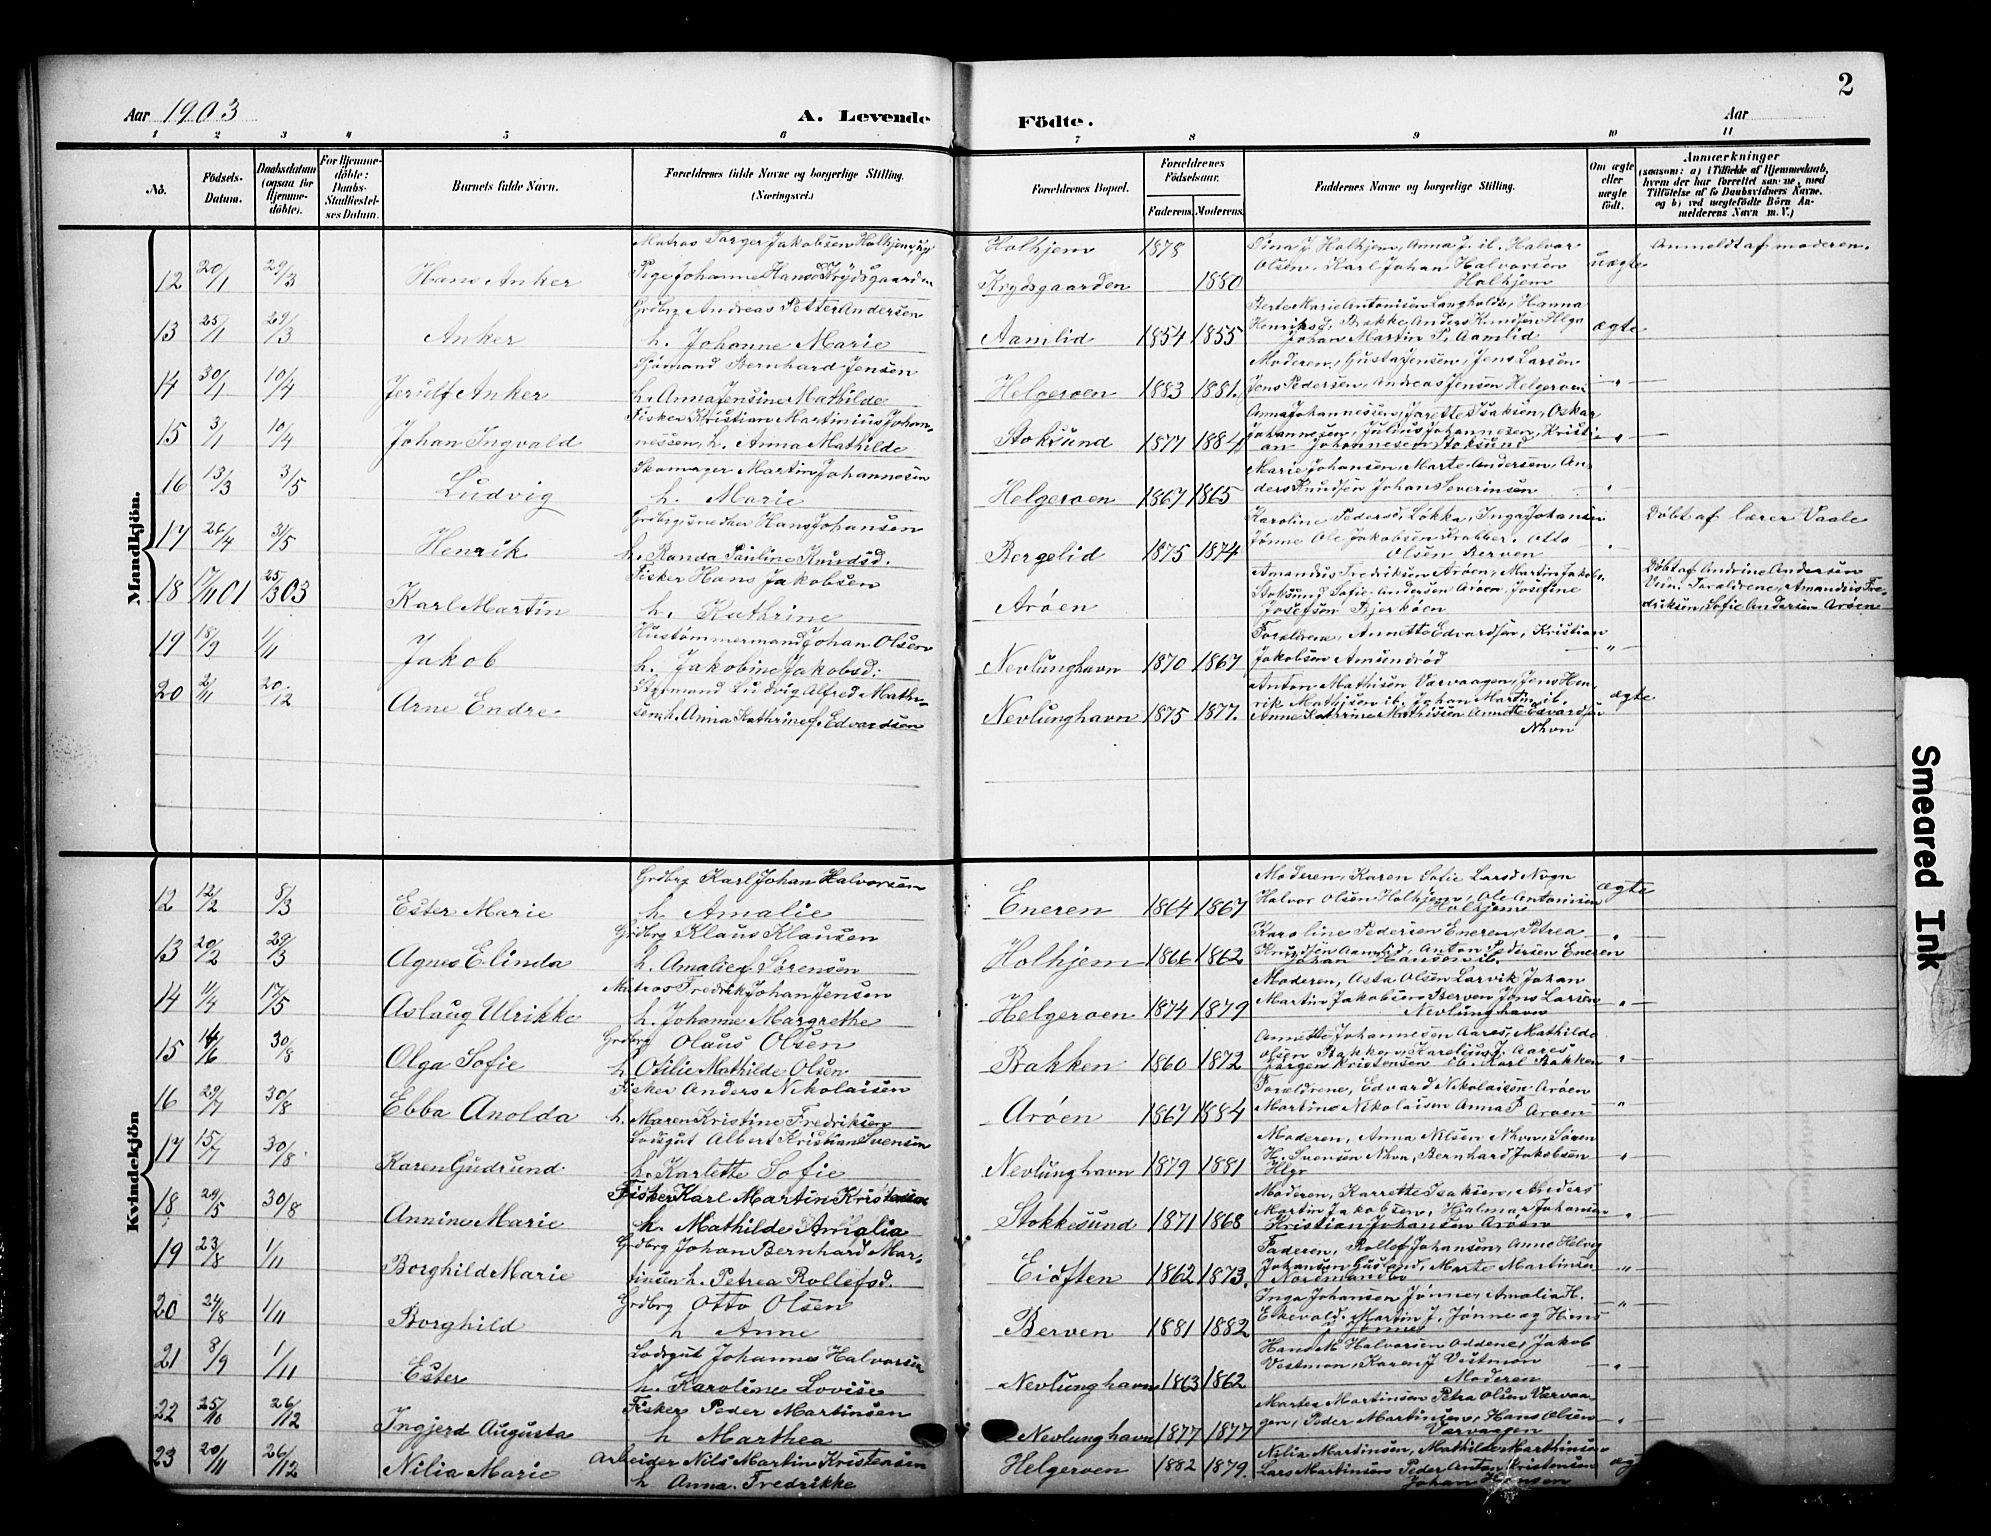 2
Aar 1903
A. Levende Födte.
Aar
1 2 3 4 5 6 7 8 9 10 11
No.
Födsels-Datum.
Daabsdatum (ogsaa for Hjemme-döbte).
For Hjemme-döbte: Daabs-Stadfæstel-ses Datum.
Barnets fulde Navn.
Forældrenes fulde Navne og borgerlige Stilling. (Næringsvei.)
Forældrenes Bopæl.
Forældrenes Födselsaar.
Faderens. Moderens.
Faddernes Navne og borgerlige Stilling.
Om ægte eller uægte födt.
Anmærkninger
(saasom: a) i Tilfælde af Hjemmedaab, hvem der har forrettet samme, med Tilföielse af to Daabsvidners Navne, og b) ved uægtefödte Börn An-melderens Navn m. V.)
Mandkjön.
12 20/1 29/3 Hans Anker
Matros Torger Jakobsen Holhjem, og
Pige Johanne Hansd Krydsgaarden
Holhjem 1878
Krydsgaarden 1880
Tina J. Holhjem, Anna J. ib. Halvor
Olsen, Karl Johan Halvorsen
Holhjem
uægte
Anmeldt af moderen.
13 25/1 29/3 Anker
Grdbrg Andreas Petter Andersen
h. Johanne Marie
Aamlid 1854 1855
Berte Marie Antonisen Langholdt, Hanna
Henriksd, Bakke, Anders Knudsen Hlgo
Johan Martin P. Aamlid
ægte
14 30/1 10/4 Jerulf Anker
Sjömand Bernhard Jensen
h. Anna Jensine Mathilde
Helgeroen 1883 1881.
Moderen, Gusta Jensen, Jens Larsen
Jens Pedersen, Andreas Jensen Helgeroen
15 3/1 10/4 Johan Ingvald
Fisker Kristian Martinius Johan-
nessen, h. Anna Mathilde
Stoksund 1877 1884
Anna Johannessen, Jarette Isaksen, Oskar
Johannesen, Julius Johannesen, Kristi-
an Johannesen Stoksund
16 13/3 3/5 Ludvig
Skomager Martin Johannesen
h. Marie
Helgeroen 1867 1865
Marie Johansen, Marte Andersen, An-
ders Knudsen Johan Severinsen
17 26/4 31/5 Henrik
Grdbrg, snedker Hans Johansen
h. Randa Pauline Knudsd.
Bergelid 1875 1874
Karoline Pedersd, Løkka, Inga Johansen
Jönne Ole Jakobsen Krabber, Otto
Olsen Berven
Döbt af lærer Vaale
18 17/11 01 25/3 03 Karl Martin
Fisker Hans Jakobsen
h. Kathrine
Arøen
Amandus Fredriksen Arøen, Martin Jakobs.
Stoksund Sofie Andersen Arøen Josefine
Josefsen Bjerkøen
Döbt af Andrine Andersen
Vidn. Forældrene, Amandus Fre-
driksen, Sofie Andersen Arøen
19 18/9 1/11 Jakob
Hustømmermand Johan Olsen
h. Jakobine Jakobsd.
Nevlunghavn 1870 1867
Forældrene, Annette Edvardsen, Kristian
Jakobsen Amundrød
20 2/11 20/12 Arne Endre
Styrmand Ludvig Alfred Mathi-
sen, h. Anna Kathrine f. Edvardsen
Nevlunghavn 1875 1877.
Anton Mathisen Varvaagen, Jens Hen-
rik Mathisen ib. Johan Martin ib.
Anne Kathrine Mathissen Annette Edvardsen
Nhvn
ægte
Kvindekjön
12 12/2 8/3 Ester Marie
Grdbrg Karl Johan Halvorsen
h Amalie
Eneren 1864 1867
Moderen, Karen Sofie Larsd Nvgn
Halvor Olsen Holhjem, Ole Antonisen
Holhjem
ægte
13 20/2 29/3 Agnes Elinda
Grdbrg Klaus Klausen
h. Amalie f. Sørensen
Holhjem 1866 1862
Karoline Pedersen Eneren, Petrea
Knudsen Aamlid, Anton Pedersen Eneren
Johan Hansen ib.
14 11/4 17/5 Aslaug Ulrikke
Matros Fredrik Johan Jensen
h. Johanne Margrethe
Helgeroen 1874 1879
Moderen, Asta Olsen Larvik Johan
Martin Jakobsen Berven Jens Larsen
Nevlunghavn
15 14/6 30/8 Olga Sofie
Grdbrg Olaus Olsen
h. Otilie Mathilde Olsen
Bakken 1860 1872
Annette Johannesen Aares, Mathilde
Olsen Bakken, Karelius J. Aares
Jørgen Kristensen ib. Karl Bakken
16 29/7 30/8 Ebba Anolda
Fisker Anders Nikolaisen
h. Maren Kristine Fredriksen
Arøen 1867 1884
Forældrene, Edvard Nikolaisen Arøen
Martins Nikolaisen Anna P Arøen
17 15/7 30/8 Karen Gudrund
Lodsgut Albert Kristian Svensen
h. Karlette Sofie
Nevlunghavn 1879 1881
Moderen, Anna Nilsen Nhvn, Søren
H. Svensen Nhvn, Bernhard Jakobsen
Hlgr
18 29/5 30/8 Annine Marie
Fisker Karl Martin Kristensen
h. Mathilde Amalia
Stokkesund 1871 1868
Moderen, Karrette Isaksen, Anders
Martin Jakobsen, Hjalmar Johansen
Kristian Johansen Arøen
19 23/8 1/11 Borghild Marie
Grdbrg Johan Bernhard Mar-
tinsen h. Petrea Rollefsd.
Eiöften 1862 1873.
Faderen, Rollef Johansen, Anne Helvig
Johansen Gusland, Marte Martinsen
Nordmandbo
20 24/8 1/11 Borghild
Grdbrg Otto Olsen
h Anne
Berven 1881 1882
Inga Johansen Jønne, Amalia H.
Ekevold. Martin J. Jønne og Hans
J. Jønne
21 8/9 1/11 Ester
Lodsgut Johannes Halvorsen
h. Karoline Lovise
Nevlunghavn 1863 1862
Hans M Halvorsen Oddene, Jakob
Vestmon, Karen J Vestmon
Moderen
22 25/10 26/12 Ingjerd Augusta
Fisker Peder Martinsen
h Marthea
Nevlunghavn 1877 1877
Martes Martinsen Petra Olsen Varvaa-
gen, Peder Martinsen, Hans Olsen
Varvaagen
23 20/11 26/12 Nilia Marie
Arbeider Nils Martin Kristensen
h Anna. Fredrikke
Helgeroen 1882 1879.
Nilia Martinsen, Mathilde Marthinsen
Lars Martinsen Peder Anton Kristensen
Johan Hansen
Smeared Ink